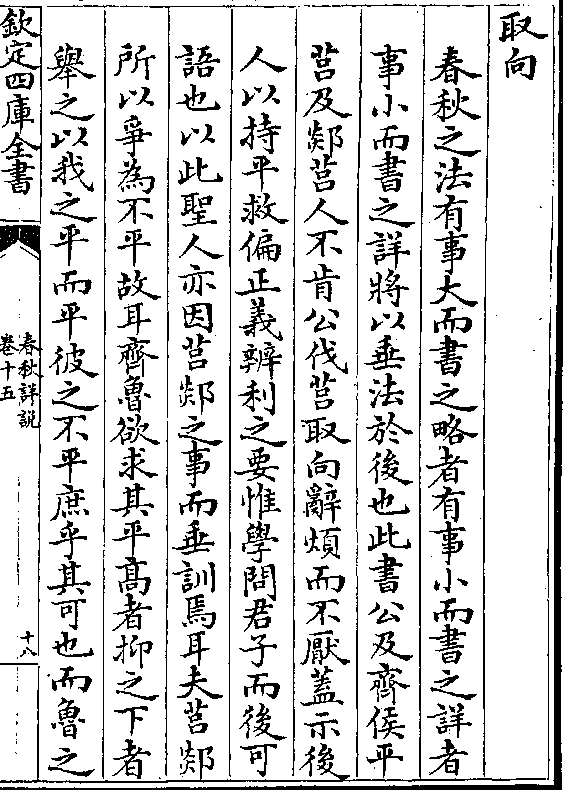 取向
春秋之法有事大而書之略者有事小而書之詳者
事小而書之詳將以垂法於後也此書公及齊侯平
莒及郯莒人不肯公伐莒取向辭煩而不厭蓋示後
人以持平救偏正義辨利之要惟學問君子而後可
語也以此聖人亦因莒郯之事而垂訓焉耳夫莒郯
所以爭為不平故耳齊魯欲求其平高者抑之下者
舉之以我之平而平彼之不平庶乎其可也而魯之
欽定四庫全書
春秋詳說
卷十五
十八